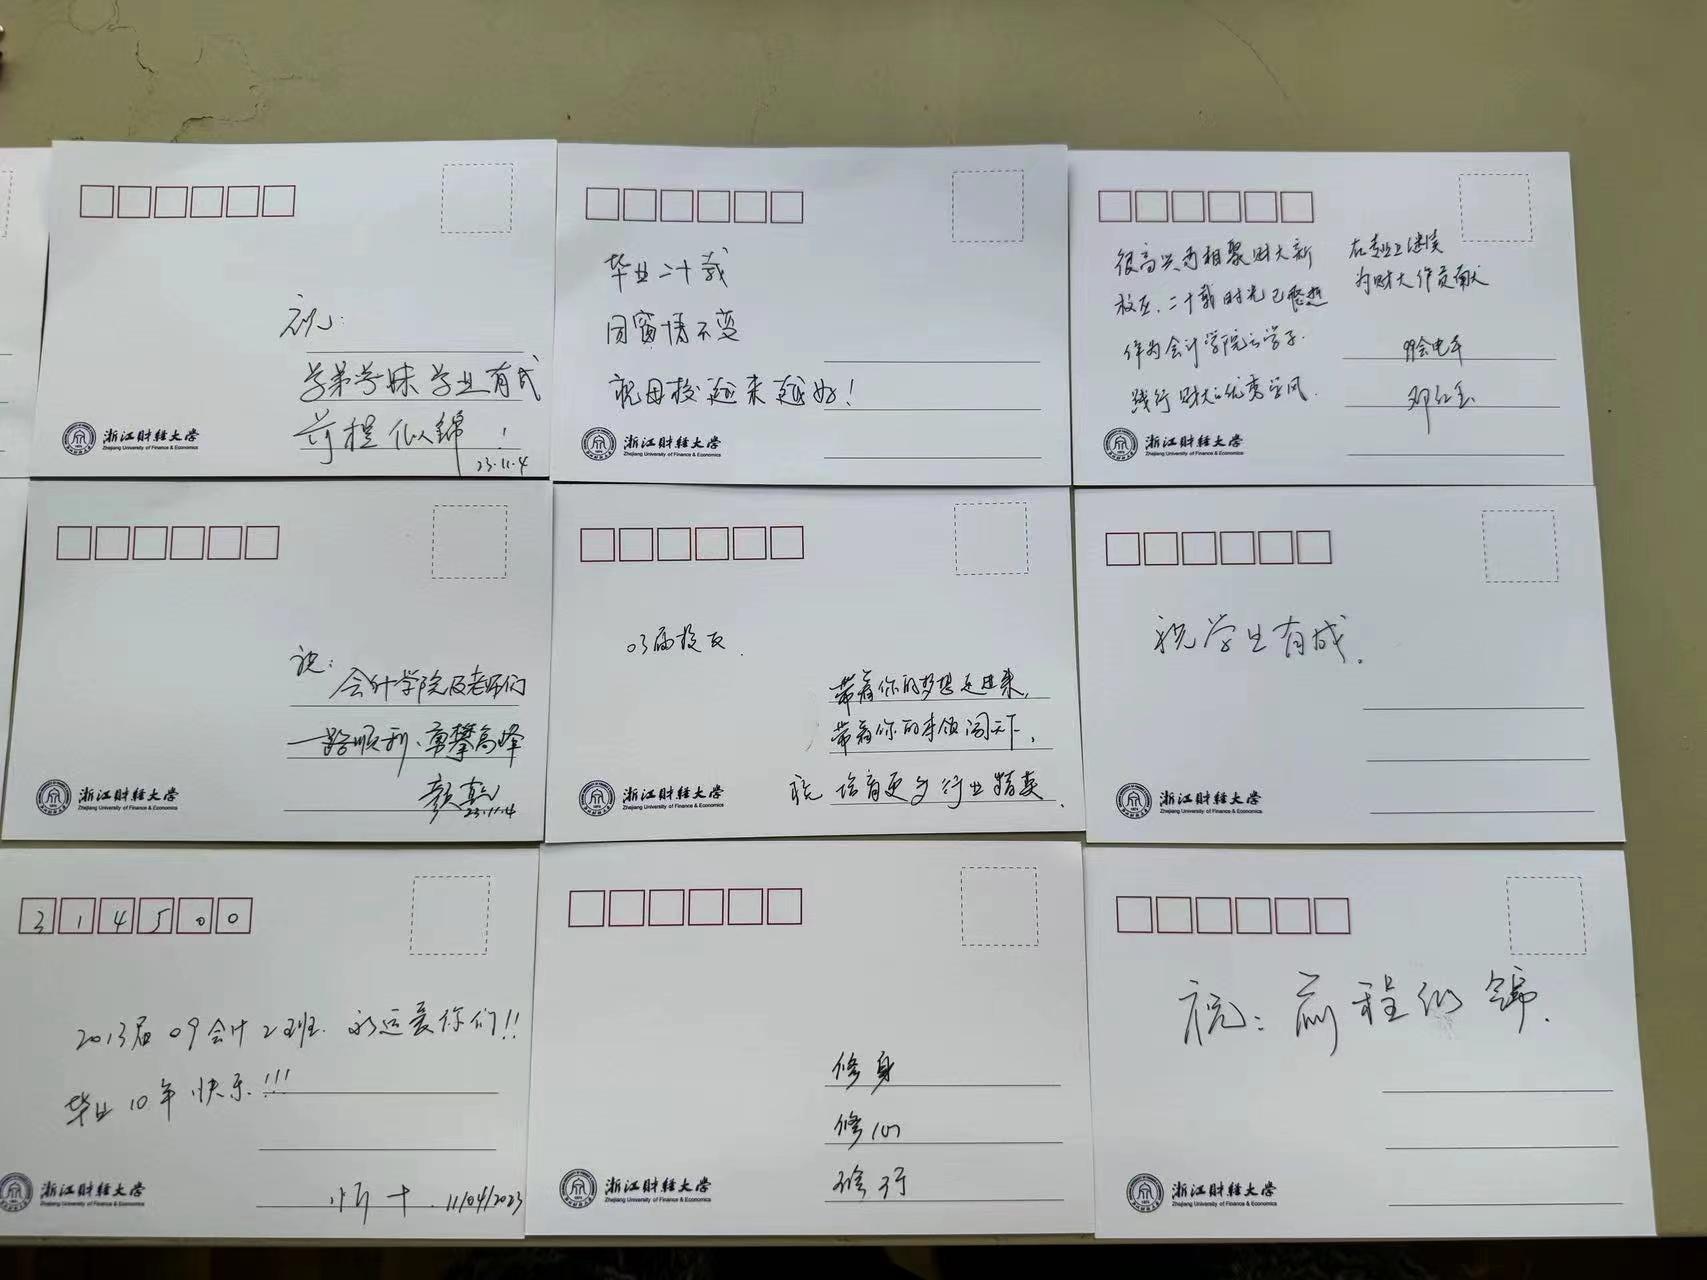 祝:
学弟学妹学业有成
前程似锦!
23.11.4
浙江财经大学
Zhejiang University of Finance & Economics
毕业二十载
同窗情不变
祝母校越来越好!
浙江财经大学
Zhejiang University of Finance & Economics
很高兴再相聚财大新
校区,二十载时光已悠悠
作为会计学院之学子.
践行财大之优秀学风.
在专业上继续
为财大作贡献
99会电本
浙江财经大学
Zhejiang University of Finance & Economics
祝:
会计学院及老师们
一路顺利、勇攀高峰
23.11.4
浙江财经大学
Zhejiang University of Finance & Economics
03届校友.
带着你的梦想走进来,
带着你的本领闯天下,
祝 培育更多行业精英.
浙江财经大学
Zhejiang University of Finance & Economics
祝学生有成.
浙江财经大学
Zhejiang University of Finance & Economics
314500
2013届 09会计2班. 永远爱你们!!
毕业10年快乐!!!
11/04/2023
浙江财经大学
Zhejiang University of Finance & Economics
修身
修心
修行
浙江财经大学
Zhejiang University of Finance & Economics
祝: 前程似锦.
浙江财经大学
Zhejiang University of Finance & Economics